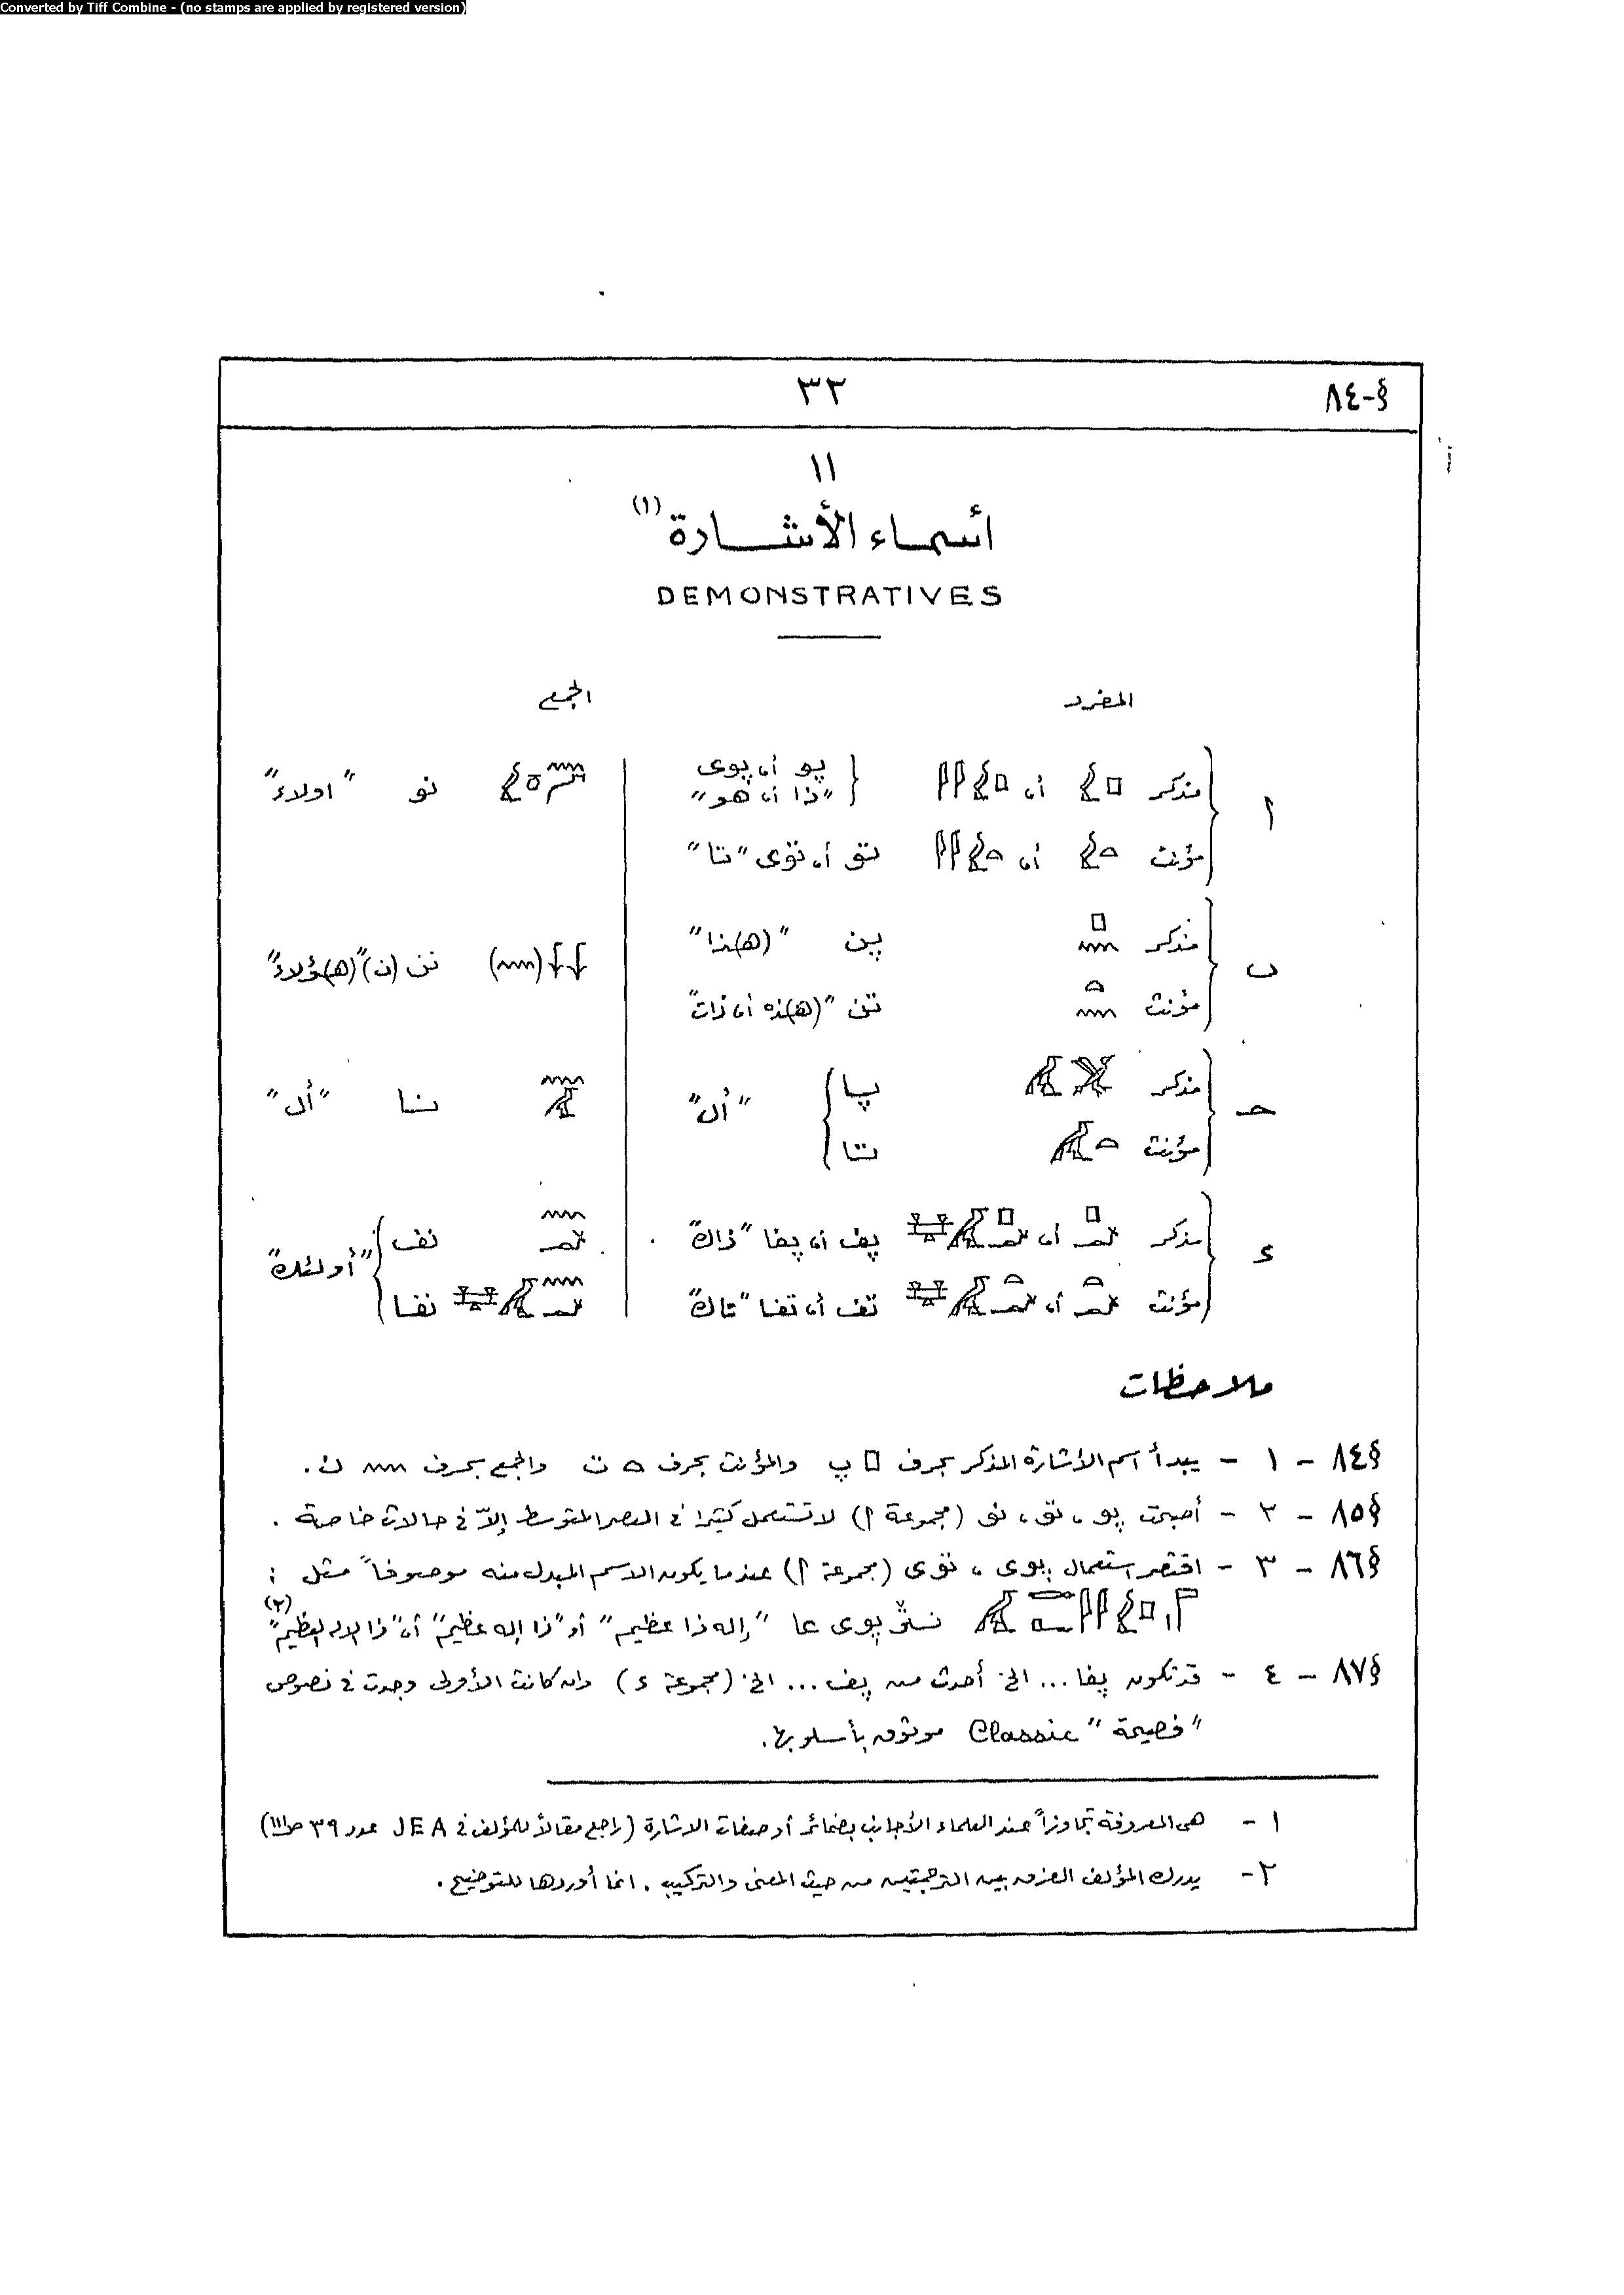 Converted by Tiff Combine - (no stamps are applied by registered version)
§-٨٤
٣٢
١١
أسماء الأشارة (١)
DEMONSTRATIVES
المفرد الجمع
أ
مذكر أى پو أى پوى نو "اولاء"
"ذا أى هو"
مؤنث أى تو أى توى "تا"
ب
مذكر پن "(ه)ذا" نن (ن) "(ه)ؤلاء"
مؤنث تن "(ه)ذه أى ذات"
جـ
مذكر پا "أل" نا "أل"
مؤنث تا
ء
مذكر أى پف أى پفا "ذاك" نف "أولئك"
مؤنث أى تف أى تفا "تاك" نفا
ملاحظات
§٨٤ - ١ - يبدأ اسم الأشارة المذكر بحرف پ والمؤنث بحرف ت والجمع بحرف ن.
§٨٥ - ٢ - أصبحت پو، تو، نو (مجموعة أ) لا تستعمل كثيرا فى العصر المتوسط إلاّ فى حالات خاصة.
§٨٦ - ٣ - اقتصر استعمال پوى، توى (مجموعة أ) عندما يكون الاسم المبدل منه موصوفاً مثل:
پوى عا "إله ذا عظيم" أو "ذا إله عظيم" أى "ذا الإله العظيم" (٢)
§٨٧ - ٤ - قد تكون پفا ... الخ أحدث من پف ... الخ (مجموعة ء) وان كانت الأولى وجدت فى نصوص
"فصيحة" Classic موثوق بأسلوبها.
١- هى المعروفة تجاوزاً عند العلماء الأجانب بضمائر أو صفات الاشارة (راجع مقالاً للمؤلف فى JEA عدد ٣٩ ص١١١)
٢- يدرك المؤلف الفرق بين الترجمتين من حيث المعنى والتركيب. انما أوردها للتوضيح.